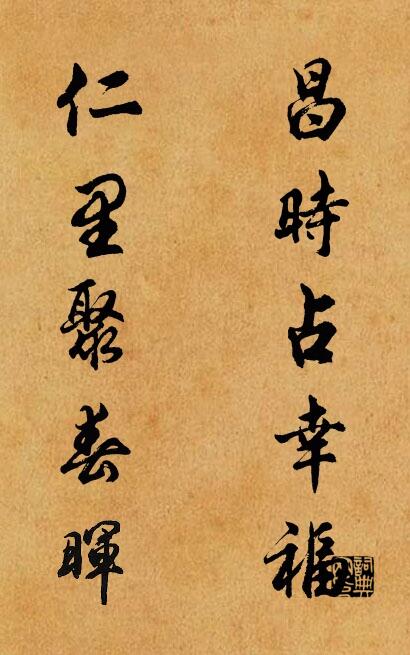 昌時占幸福
仁里聚春暉